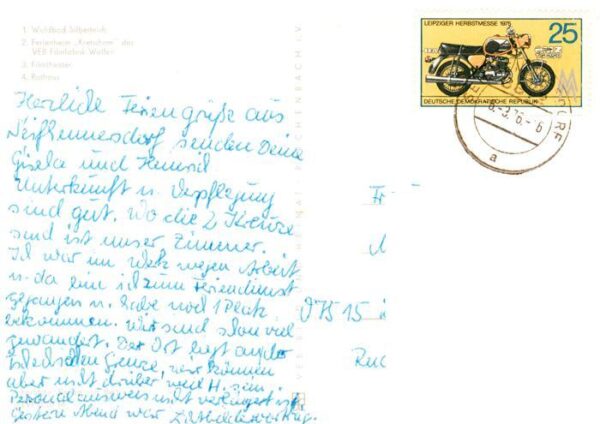 1. Waldbad Silberteich
2. Ferienheim „Kretscham" des
VEB Filmfabrik Wolfen
3. Filmtheater
4. Rathaus
LEIPZIGER HERBSTMESSE 1975
25
DEUTSCHE DEMOKRATISCHE REPUBLIK
a
Herzliche Feriengrüße aus
Seifhennersdorf senden Deine
Gisela und
Unterkunft u. Verpflegung
sind gut. Wo die 2 Kreuze
sind ist unser Zimmer.
Ich war im Werk wegen Arbeit
u. da ein ich zum Feriendienst
gegangen u. habe noch 1 Platz
bekommen. Wir sind schon viel
gewandert. Der Ort liegt an der
Grenze, wir können
aber nicht drüber weil H. sein
Personalausweis nicht verlängert ist.
Gestern Abend war Lichtbildervortrag.
Fr
75 15